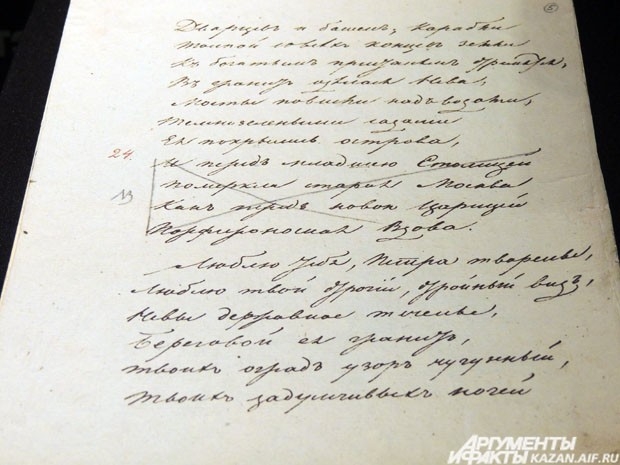 5
Дворцевъ и башенъ; корабли
Толпой со всѣхъ концовъ земли
Къ богатымъ пристанямъ стремятся;
Въ гранитъ одѣлася Нева;
Мосты повисли надъ водами;
Темнозелеными садами
Ея покрылись острова,
24. И передъ младшею Столицей
13 Померкла старая Москва
Какъ предъ новой Царицей
Порфироносная Вдова.
Люблю тебя, Петра творенье,
Люблю твой строгій, стройный видъ,
Невы державное теченье,
Береговой ея гранитъ,
Твоихъ оградъ узоръ чугунный,
Твоихъ задумчивыхъ ночей
АРГУМЕНТЫ
И ФАКТЫ KAZAN.AIF.RU